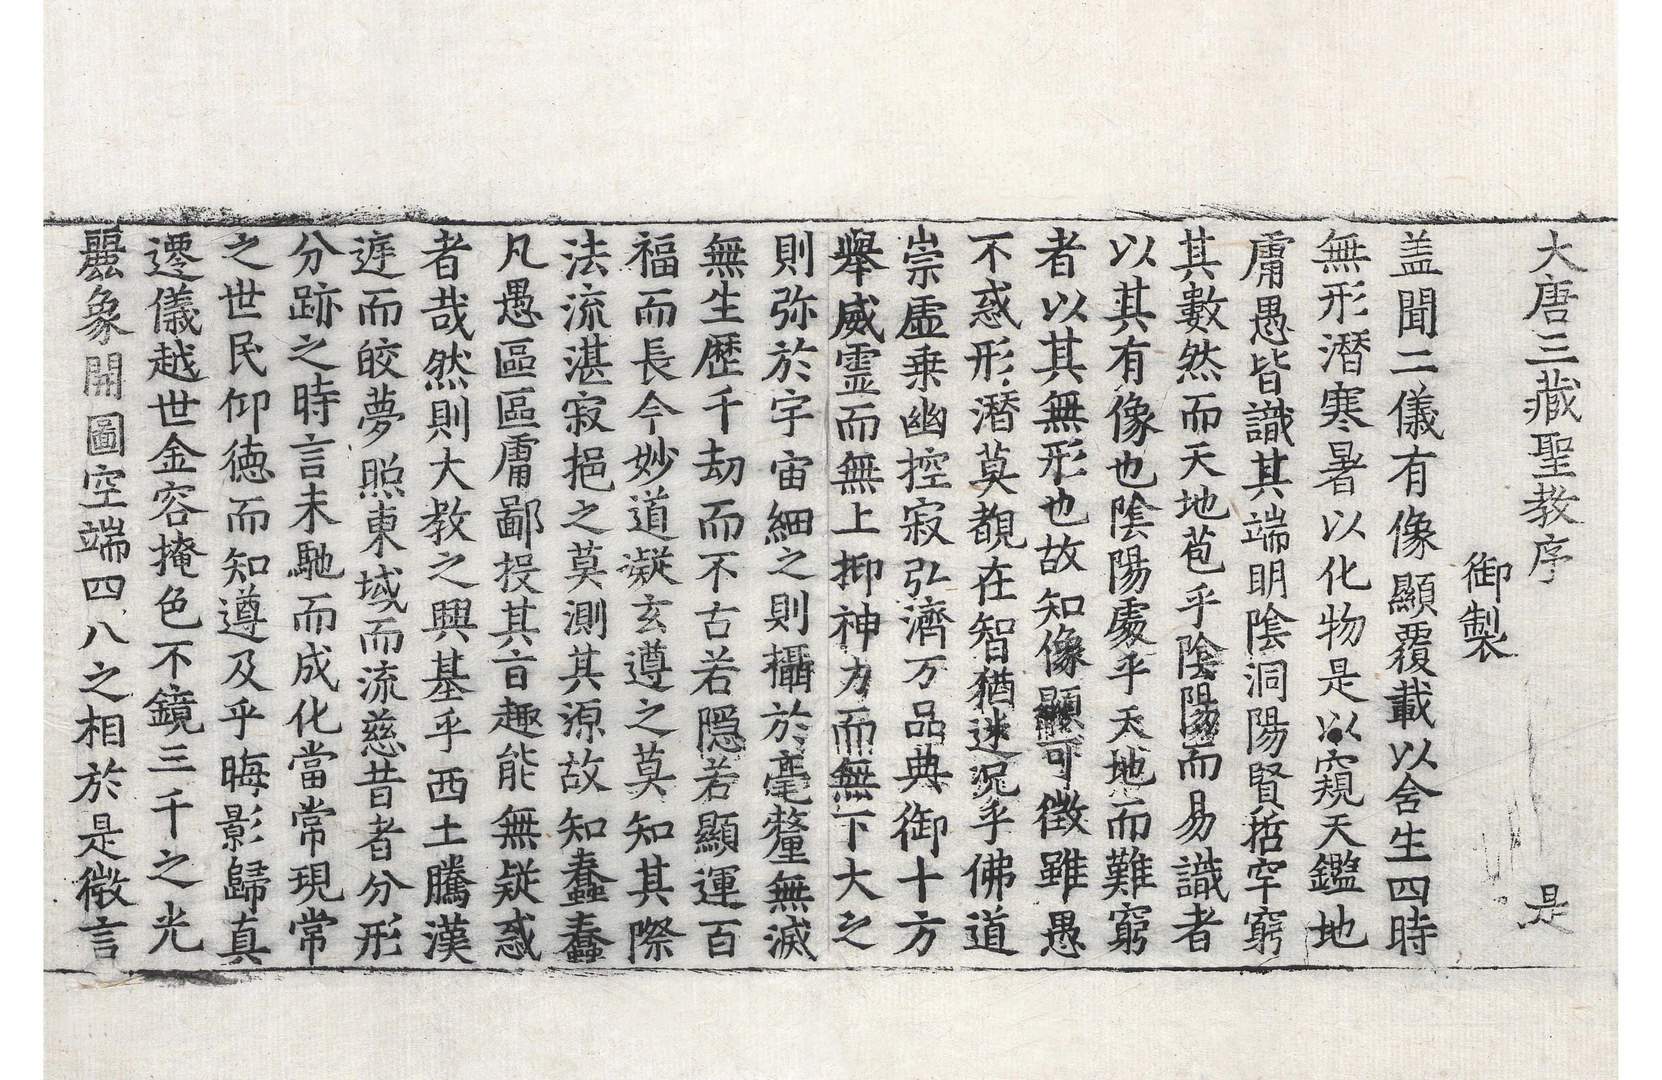 大唐三藏聖教序 是
御製
盖聞二儀有像顯覆載以含生四時
無形潛寒暑以化物是以窺天鑑地
庸愚皆識其端明陰洞陽賢哲罕窮
其數然而天地苞乎陰陽而易識者
以其有像也陰陽處乎天地而難窮
者以其無形也故知像顯可徵雖愚
不惑形潛莫覩在智猶迷況乎佛道
崇虛乗幽控寂弘濟万品典御十方
舉威霊而無上抑神力而無下大之
則弥於宇宙細之則攝於毫釐無滅
無生歷千劫而不古若隱若顯運百
福而長今妙道凝玄遵之莫知其際
法流湛寂挹之莫測其源故知蠢蠢
凡愚區區庸鄙投其旨趣能無疑惑
者哉然則大教之興基乎西土騰漢
遅而皎夢照東域而流慈昔者分形
分跡之時言未馳而成化當常現常
之世民仰徳而知遵及乎晦影歸真
遷儀越世金容掩色不鏡三千之光
麗象開圖空端四八之相於是微言